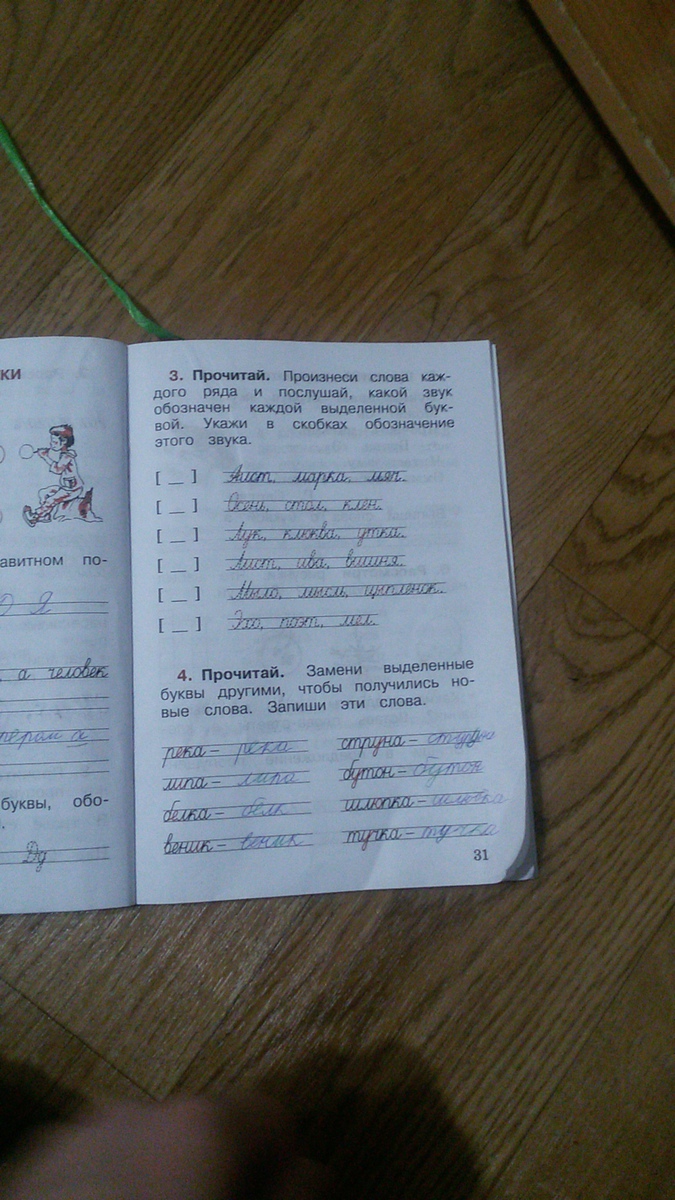 ки
авитном по-
О Я
, а человек
буквы, обо-
Дд
3. Прочитай. Произнеси слова каж-
дого ряда и послушай, какой звук
обозначен каждой выделенной бук-
вой. Укажи в скобках обозначение
этого звука.
[ _ ] Аист, марка, мяч.
[ _ ] Осень, стол, клён.
[ _ ] Лук, клюква, утка.
[ _ ] Аист, ива, вишня.
[ _ ] Мыло, мысль, цыплёнок.
[ _ ] Эхо, поэт, мел.
4. Прочитай. Замени выделенные
буквы другими, чтобы получились но-
вые слова. Запиши эти слова.
река – река струна – струна
липа – липа бутон – бутон
белка – белк шлюпка –
веник – веник тучка – тучка
31